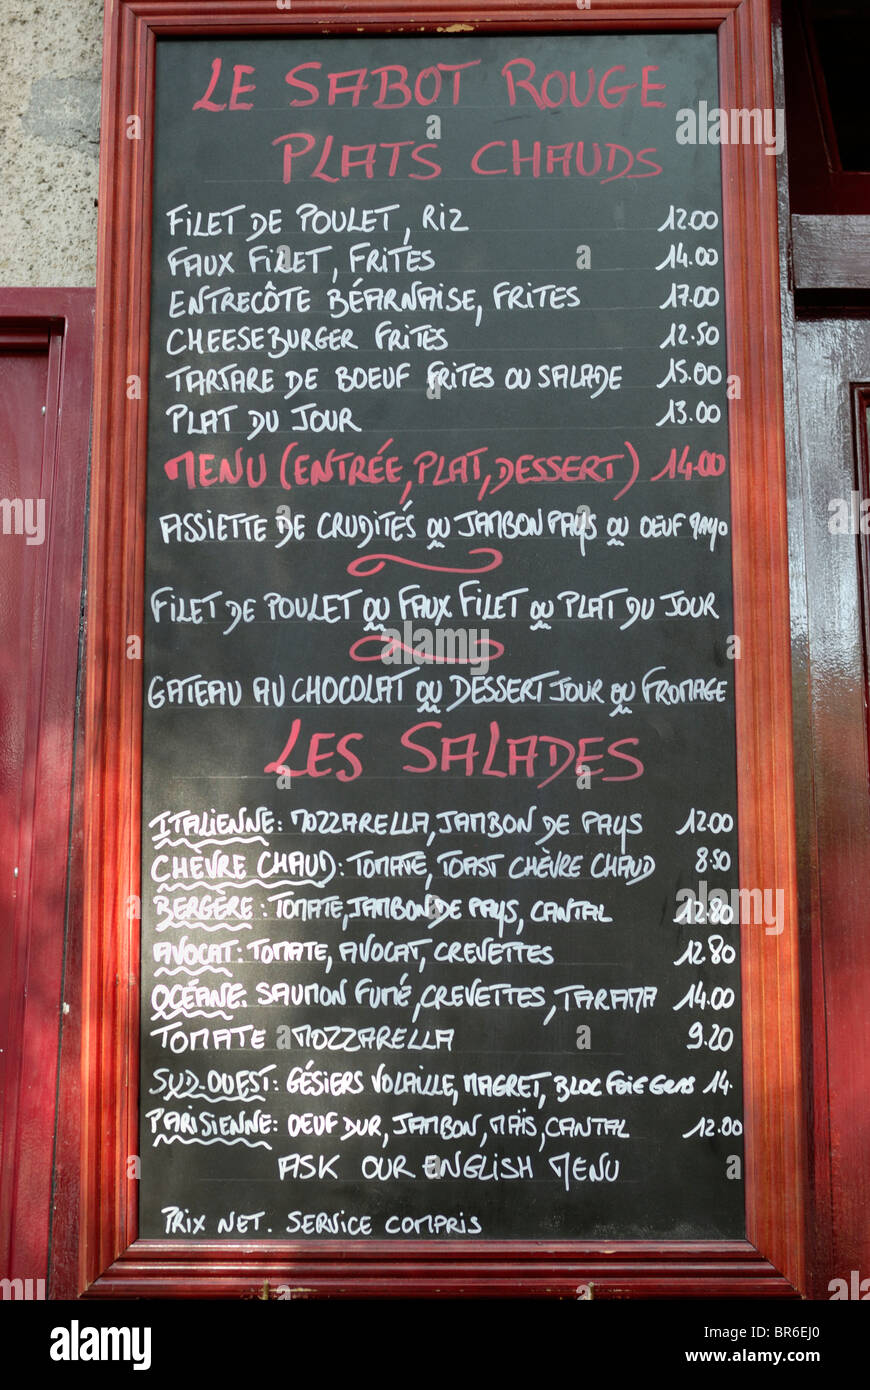 LE SABOT ROUGE
PLATS CHAUDS
FILET DE POULET, RIZ 12.00
FAUX FILET, FRITES 14.00
ENTRECÔTE BÉARNAISE, FRITES 17.00
CHEESEBURGER FRITES 12.50
TARTARE DE BOEUF FRITES OU SALADE 15.00
PLAT DU JOUR 13.00
MENU (ENTRÉE, PLAT, DESSERT) 14.00
ASSIETTE DE CRUDITÉS OU JAMBON PAYS OU OEUF MAYO
FILET DE POULET OU FAUX FILET OU PLAT DU JOUR
GATEAU AU CHOCOLAT OU DESSERT JOUR OU FROMAGE
LES SALADES
ITALIENNE: MOZZARELLA, JAMBON DE PAYS 12.00
CHÈVRE CHAUD: TOMATE, TOAST CHÈVRE CHAUD 8.50
BERGÈRE: TOMATE, JAMBON DE PAYS, CANTAL 12.80
AVOCAT: TOMATE, AVOCAT, CREVETTES 12.80
OCÉANE: SAUMON FUMÉ, CREVETTES, TARAMA 14.00
TOMATE MOZZARELLA 9.20
SUD-OUEST: GÉSIERS VOLAILLE, MAGRET, BLOC FOIE GRAS 14.
PARISIENNE: OEUF DUR, JAMBON, MAÏS, CANTAL 12.00
ASK OUR ENGLISH MENU
PRIX NET. SERVICE COMPRIS
alamy
Image ID: BR6EJ0
www.alamy.com